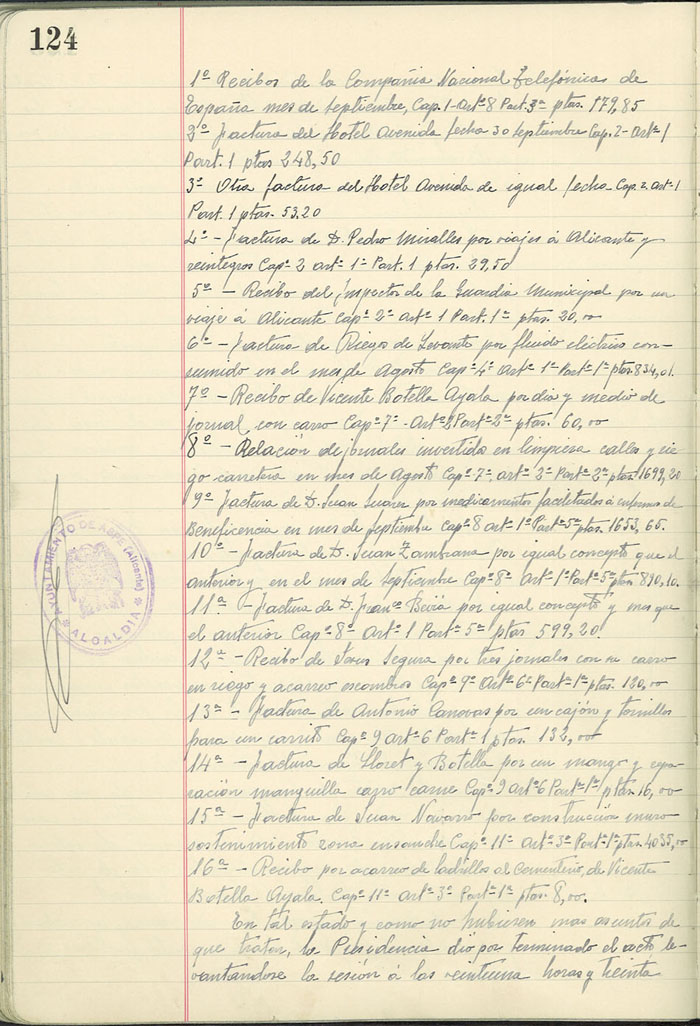 124
1º Recibos de la Compañia Nacional Telefónica de
España mes de septiembre, Cap. 1-Artº 8 Part. 3ª ptas. 179,85
2º Factura del Hotel Avenida fecha 30 septiembre Cap. 2- Artº 1
Part. 1 ptas 248,50
3º Otra factura del Hotel Avenida de igual fecha Cap. 2. art. 1
Part. 1 ptas. 53.20
4º - Factura de D. Pedro Miralles por viajes á Alicante y
reintegros Capº 2 artº 1º Part. 1 ptas. 29,50
5º - Recibo del Inspector de la Guardia Municipal por un
viaje á Alicante Capº 2º Artº 1 Part. 1ª ptas. 20,oo
6º - Factura de Riegos de Levante por fluido eléctrico con-
sumido en el mes de Agosto Capº 4º Artº 1º Partª 1ª ptas. 834,01.
7º - Recibo de Vicente Botella Ayala por dia y medio de
jornal con carro Capº 7º - Artº Partª 2ª ptas. 60,oo
8º - Relación de jornales invertidos en limpieza calles y rie-
go carretera en mes de Agosto Capº 7º artº 2º Partª 2ª ptas. 1699,20
9º Factura de D. Juan Suarez por medicamentos facilitados á enfermos de
Beneficencia en mes de septiembre Capº 8 artº 1º Partª 5ª ptas. 1653,65.
10ª - Factura de D. Juan Zambrana por igual concepto que el
anterior y en el mes de septiembre Capº 8º Artº 1º Partª 5ª ptas. 810,10.
11ª - Factura de D. Franco por igual concepto y mes que
el anterior Capº 8º Artº 1 Partª 5ª ptas 599,20.
12ª - Recibo de Segura por tres jornales con su carro
en riego y acarreo escombros Capº 9º Artº 6º Partª 1ª ptas. 120,oo
13ª - Factura de Antonio Canovas por un cajón y tornillos
para un carrito Capº 9 Artº 6 Partª 1 ptas. 132,oo
14ª - Factura de Lloret y Botella por un mango y repa-
ración manguilla carro carne Capº 9 Artº 6 Partª 1ª ptas. 16,oo
15ª - Factura de Juan Navarro por construcción muro
sostenimiento zona ensanche Capº 11º Artº 3º Partª 1ª ptas. 4035,oo
16ª - Recibo por acarreo de ladrillos al Cementerio, de Vicente
Botella Ayala. Capº 11º artº 3º Partª 1ª ptas. 8,oo.
En tal estado y como no hubiesen mas asuntos de
que tratar, la Presidencia dió por terminado el acto le-
vantandose la sesión á las veintiuna horas y treinta
AYUNTAMIENTO DE ASPE (Alicante)
* ALCALDIA *